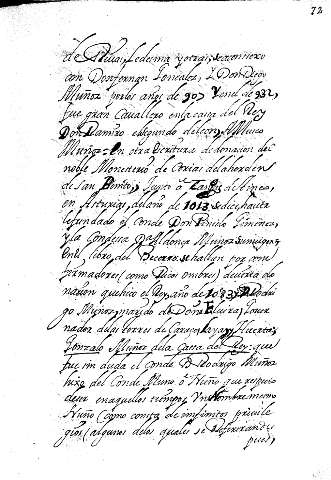 72
de Rivas, Ledesma y otras, se
con Don fernan Gonzalez, y Don Diego
Muñoz por los años de 907 y en el de 932,
fue gran Cavallero en la casa del Rey
Don Ramiro el segundo de Leon, Muño
Muñoz. En otra escritura de donacion del
noble Monesterio de Corias de la horden
de San Benito, Sugeto de Tineo,
en Asturias, del año de 1013, se dice ha de
le fundado el Conde Don Piniolo Ximenez,
y la Condesa Dª Aldonza Muñoz su muger,
En el libro del Becerro se hallan por con
firmadores (como Ricos ombres) de cierta do
nacion que hizo el Rey, año de Rodri
go Munoz, marido de Doña Elvira, Gover
nador de las torres de Carrion,
Gonzalo Muñoz de la Casa del Rey: que
fue sin duda el conde D. Rodrigo Muñoz
hixo del Conde Muno ò Nuño, que es preciso
decir en aquellos tiempos. Un nombre mesmo
Nuño (como consta de infinitos privile
gios) algunos de los quales se
pues,